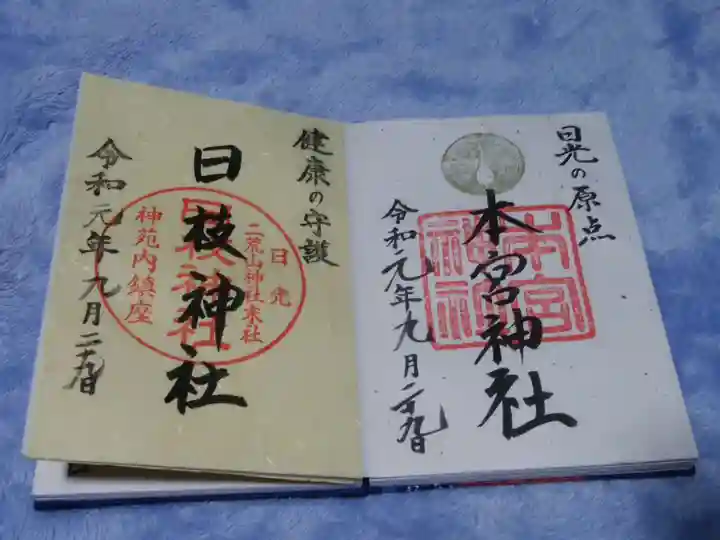 日光の原点
本宮神社
本宮神社
令和元年九月二十九日
健康の守護
日光
二荒山神社末社
日枝神社
日枝神社
神苑内鎮座
令和元年九月二十九日